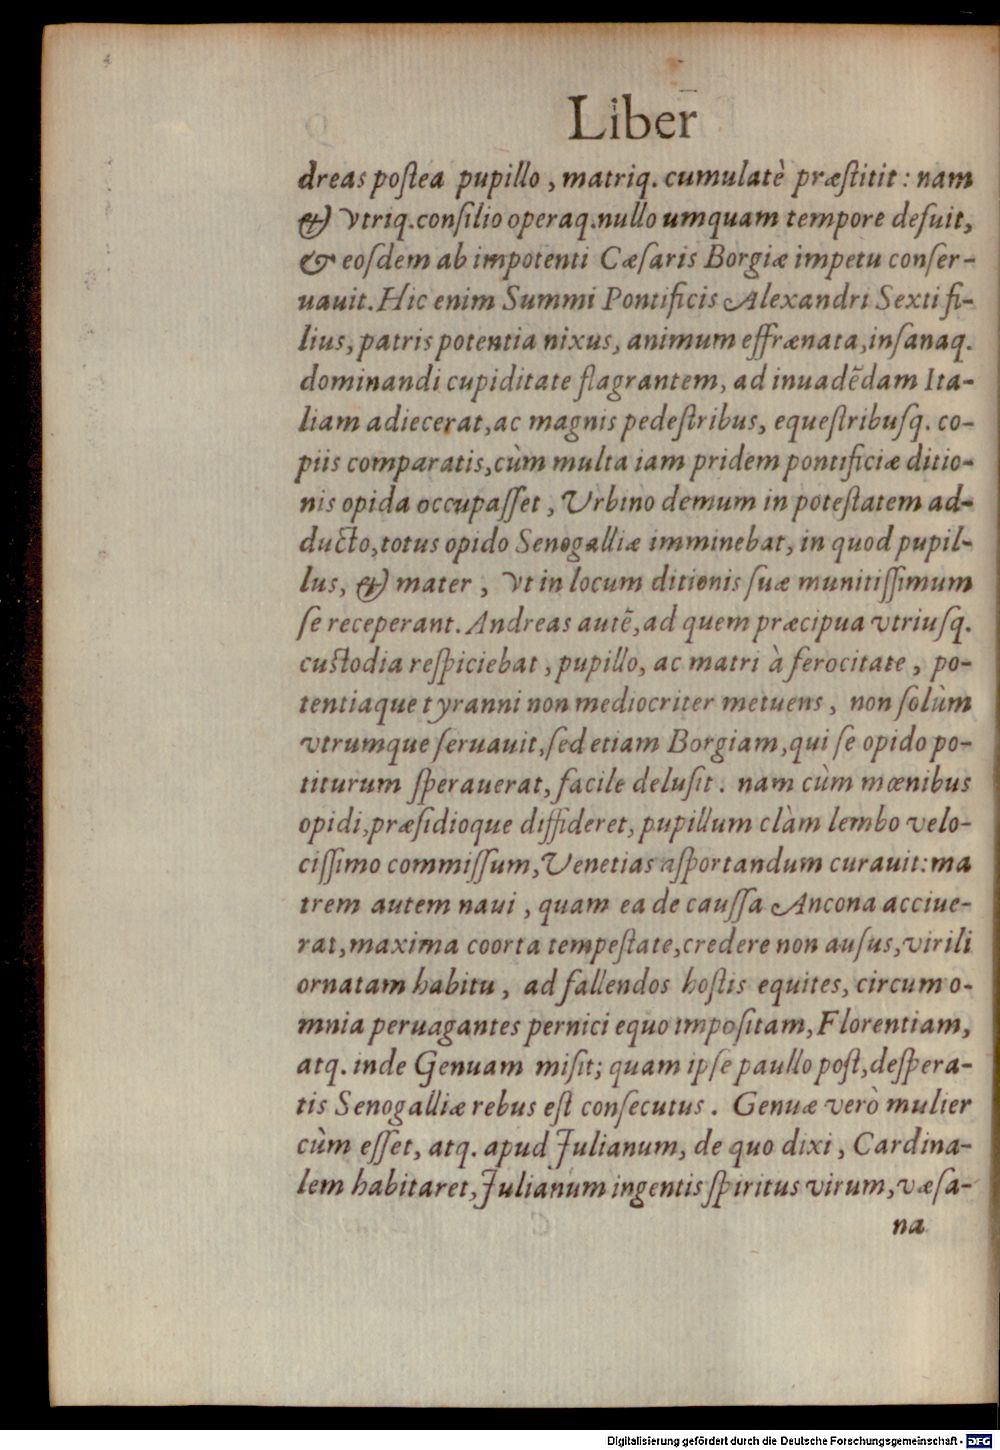 Liber
dreas poſtea pupillo, matriq. cumulatè præſtitit: nam
& vtriq. conſilio operaq. nullo umquam tempore defuit,
& eoſdem ab impotenti Cæſaris Borgiæ impetu conſer-
uauit. Hic enim Summi Pontificis Alexandri Sexti fi-
lius, patris potentia nixus, animum effrænata, inſanaq.
dominandi cupiditate flagrantem, ad inuadēdam Ita-
liam adiecerat, ac magnis pedeſtribus, equeſtribuſq. co-
piis comparatis, cùm multa iam pridem pontificiæ ditio-
nis opida occupaſſet, Vrbino demum in poteſtatem ad-
ducto, totus opido Senogalliæ imminebat, in quod pupil-
lus, & mater, vt in locum ditionis ſuæ munitiſſimum
ſe receperant. Andreas autē, ad quem præcipua vtriuſq.
cuſtodia reſpiciebat, pupillo, ac matri à ferocitate, po-
tentiaque tyranni non mediocriter metuens, non ſolùm
vtrumque ſeruauit, ſed etiam Borgiam, qui ſe opido po-
titurum ſperauerat, facile deluſit. nam cùm mœnibus
opidi, præſidioque diffideret, pupillum clàm lembo velo-
ciſſimo commiſſum, Venetias aſportandum curauit: ma
trem autem naui, quam ea de cauſſa Ancona acciue-
rat, maxima coorta tempeſtate, credere non auſus, virili
ornatam habitu, ad fallendos hoſtis equites, circum o-
mnia peruagantes pernici equo impoſitam, Florentiam,
atq. inde Genuam miſit; quam ipſe paullo poſt, deſpera-
tis Senogalliæ rebus eſt conſecutus. Genuæ verò mulier
cùm eſſet, atq. apud Julianum, de quo dixi, Cardina-
lem habitaret, Julianum ingentis ſpiritus virum, væſa-
na
Digitalisierung gefördert durch die Deutsche Forschungsgemeinschaft - DFG